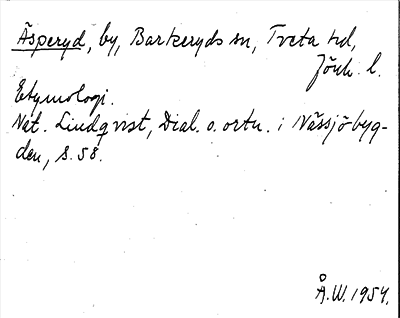 Äsperyd, by, Barkeryds sn, Tveta hd,
Jönk. l.
Etymologi.
Nat. Lindqvist, Dial. o. ortn. i Nässjöbyg-
den, s. 58.
Å.W. 1954.